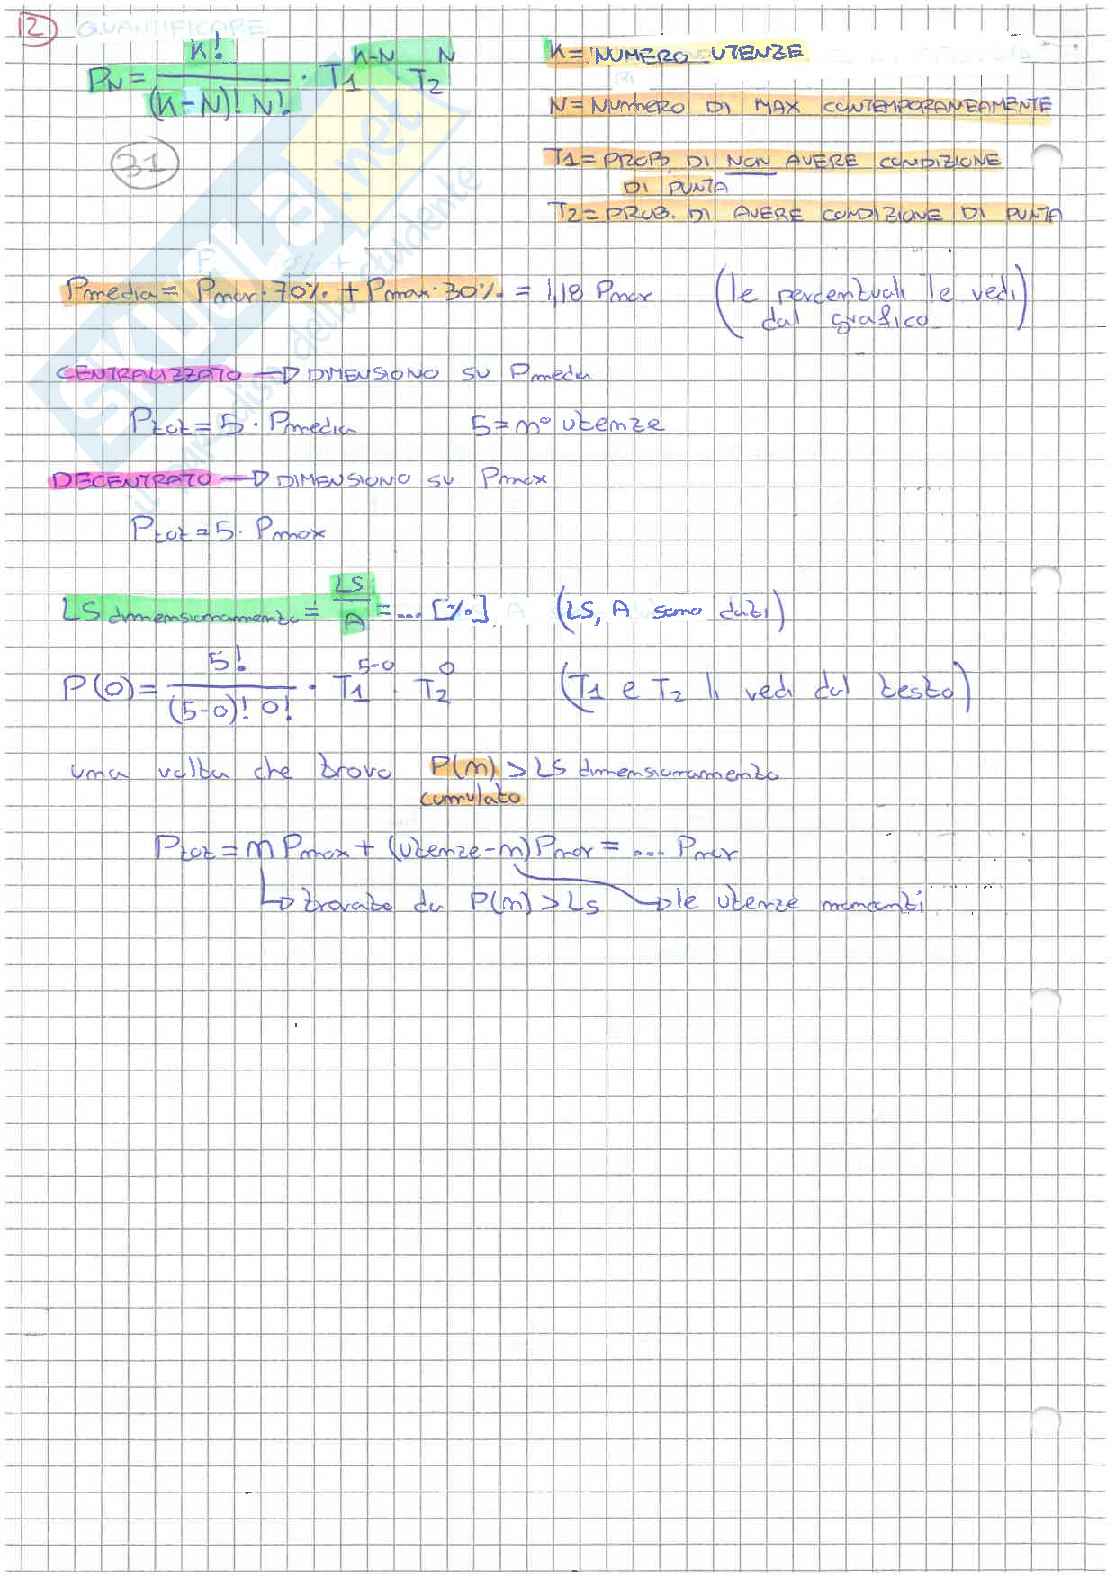 12
QUANTIFICARE
P_N = K! / (K-N)! N! · T1^(K-N) T2^N
K = NUMERO UTENZE
N = NUMERO DI MAX CONTEMPORANEAMENTE
31
T1 = PROB. DI NON AVERE CONDIZIONE
DI PUNTA
T2 = PROB. DI AVERE CONDIZIONE DI PUNTA
SKUOLA.net
Pmedia = Pmor · 70% + Pmax · 30% = 1,18 Pmor (le percentuali le vedi
dal grafico)
CENTRALIZZATO → DIMENSIONO SU Pmedia
Ptot = 5 · Pmedia 5 = n° utenze
DECENTRATO → DIMENSIONO SU Pmax
Ptot = 5 · Pmax
LS dimensionamento = LS / A = ... [%] (LS, A sono dati)
P(0) = 5! / (5-0)! 0! · T1^(5-0) · T2^0 (T1 e T2 li vedi dal testo)
una volta che trovo P(n) > LS dimensionamento
cumulato
Ptot = n Pmax + (utenze - n) Pmor = ... Pmor
→ trovato da P(n) > LS → le utenze rimanenti